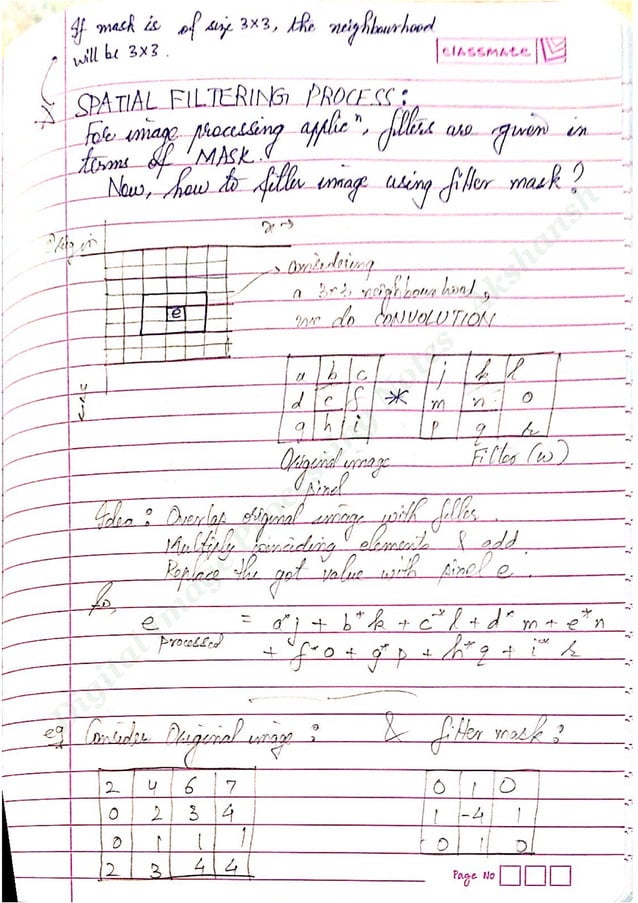 If mask is of size 3x3, the neighbourhood
will be 3x3.
CLASSMATE
SPATIAL FILTERING PROCESS:
For image processing applicⁿ, filters are given in
terms of MASK.
Now, how to filter image using filter mask?
Origin
x→
considering
a 3x3 neighbourhood,
we do CONVOLUTION
e
a b c * j k l
d e f m n o
g h i p q r
Original image Filter (w)
pixel
Idea: Overlap original image with filter.
Multiply coinciding elements & add.
Replace the got value with pixel e.
So,
e processed = a*j + b*k + c*l + d*m + e*n
+ f*o + g*p + h*q + i*r
eg Consider Original image: & filter mask:
2 4 6 7 0 1 0
0 2 3 4 1 -4 1
0 1 1 1 0 1 0
2 3 4 4
Page No
Digital Image Processing Notes